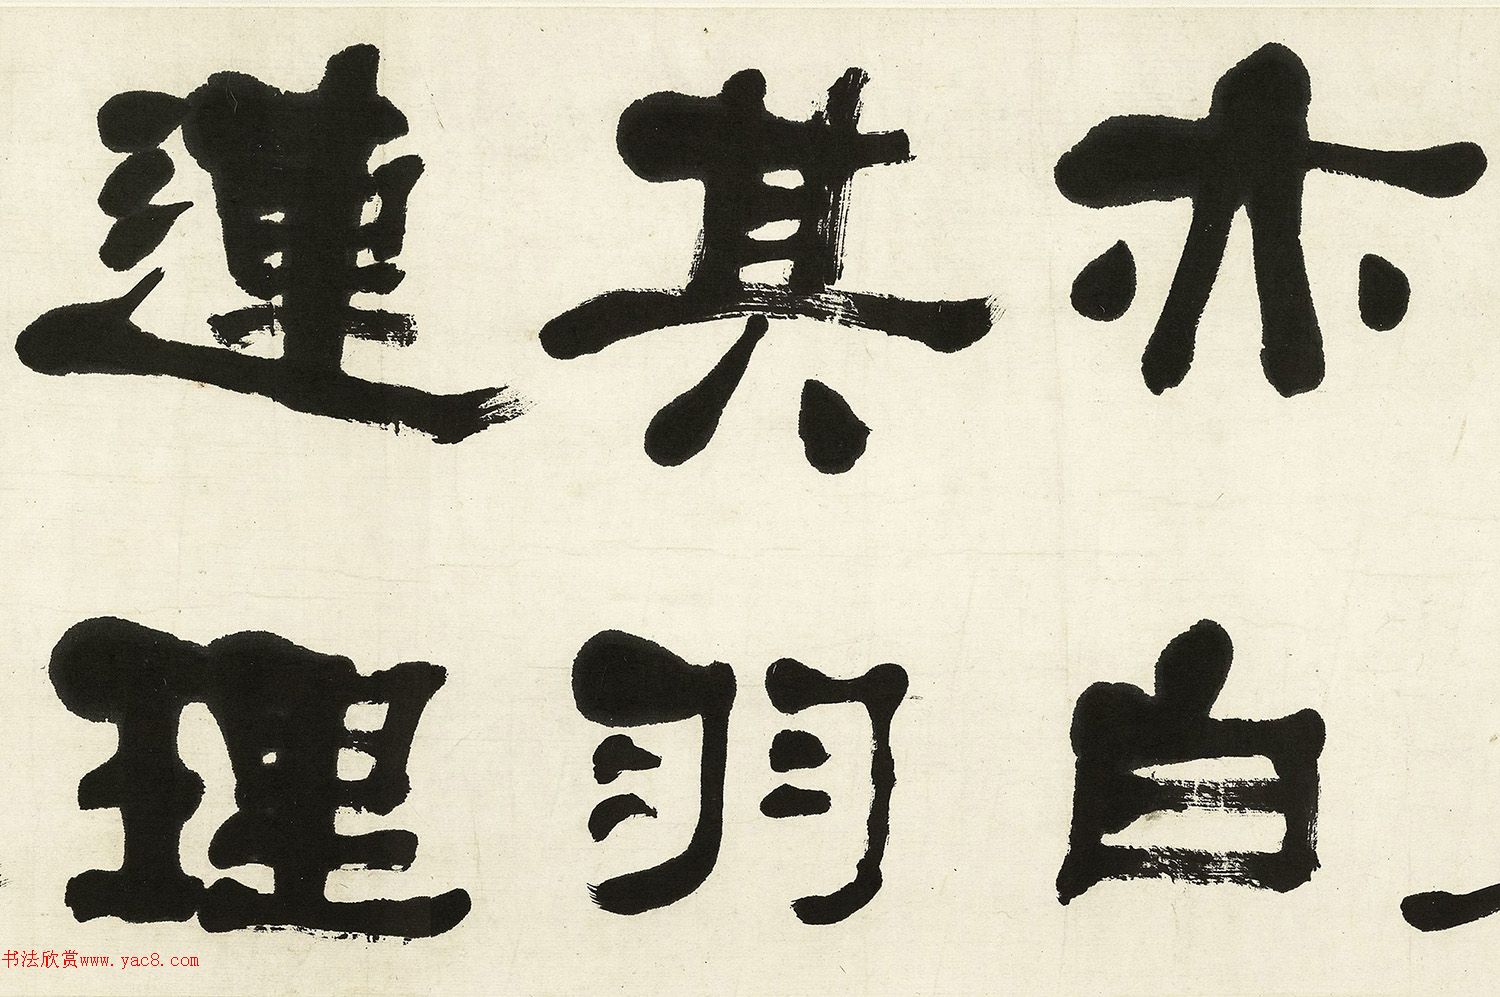 亦白
其羽
運理
书法欣赏www.yac8.com